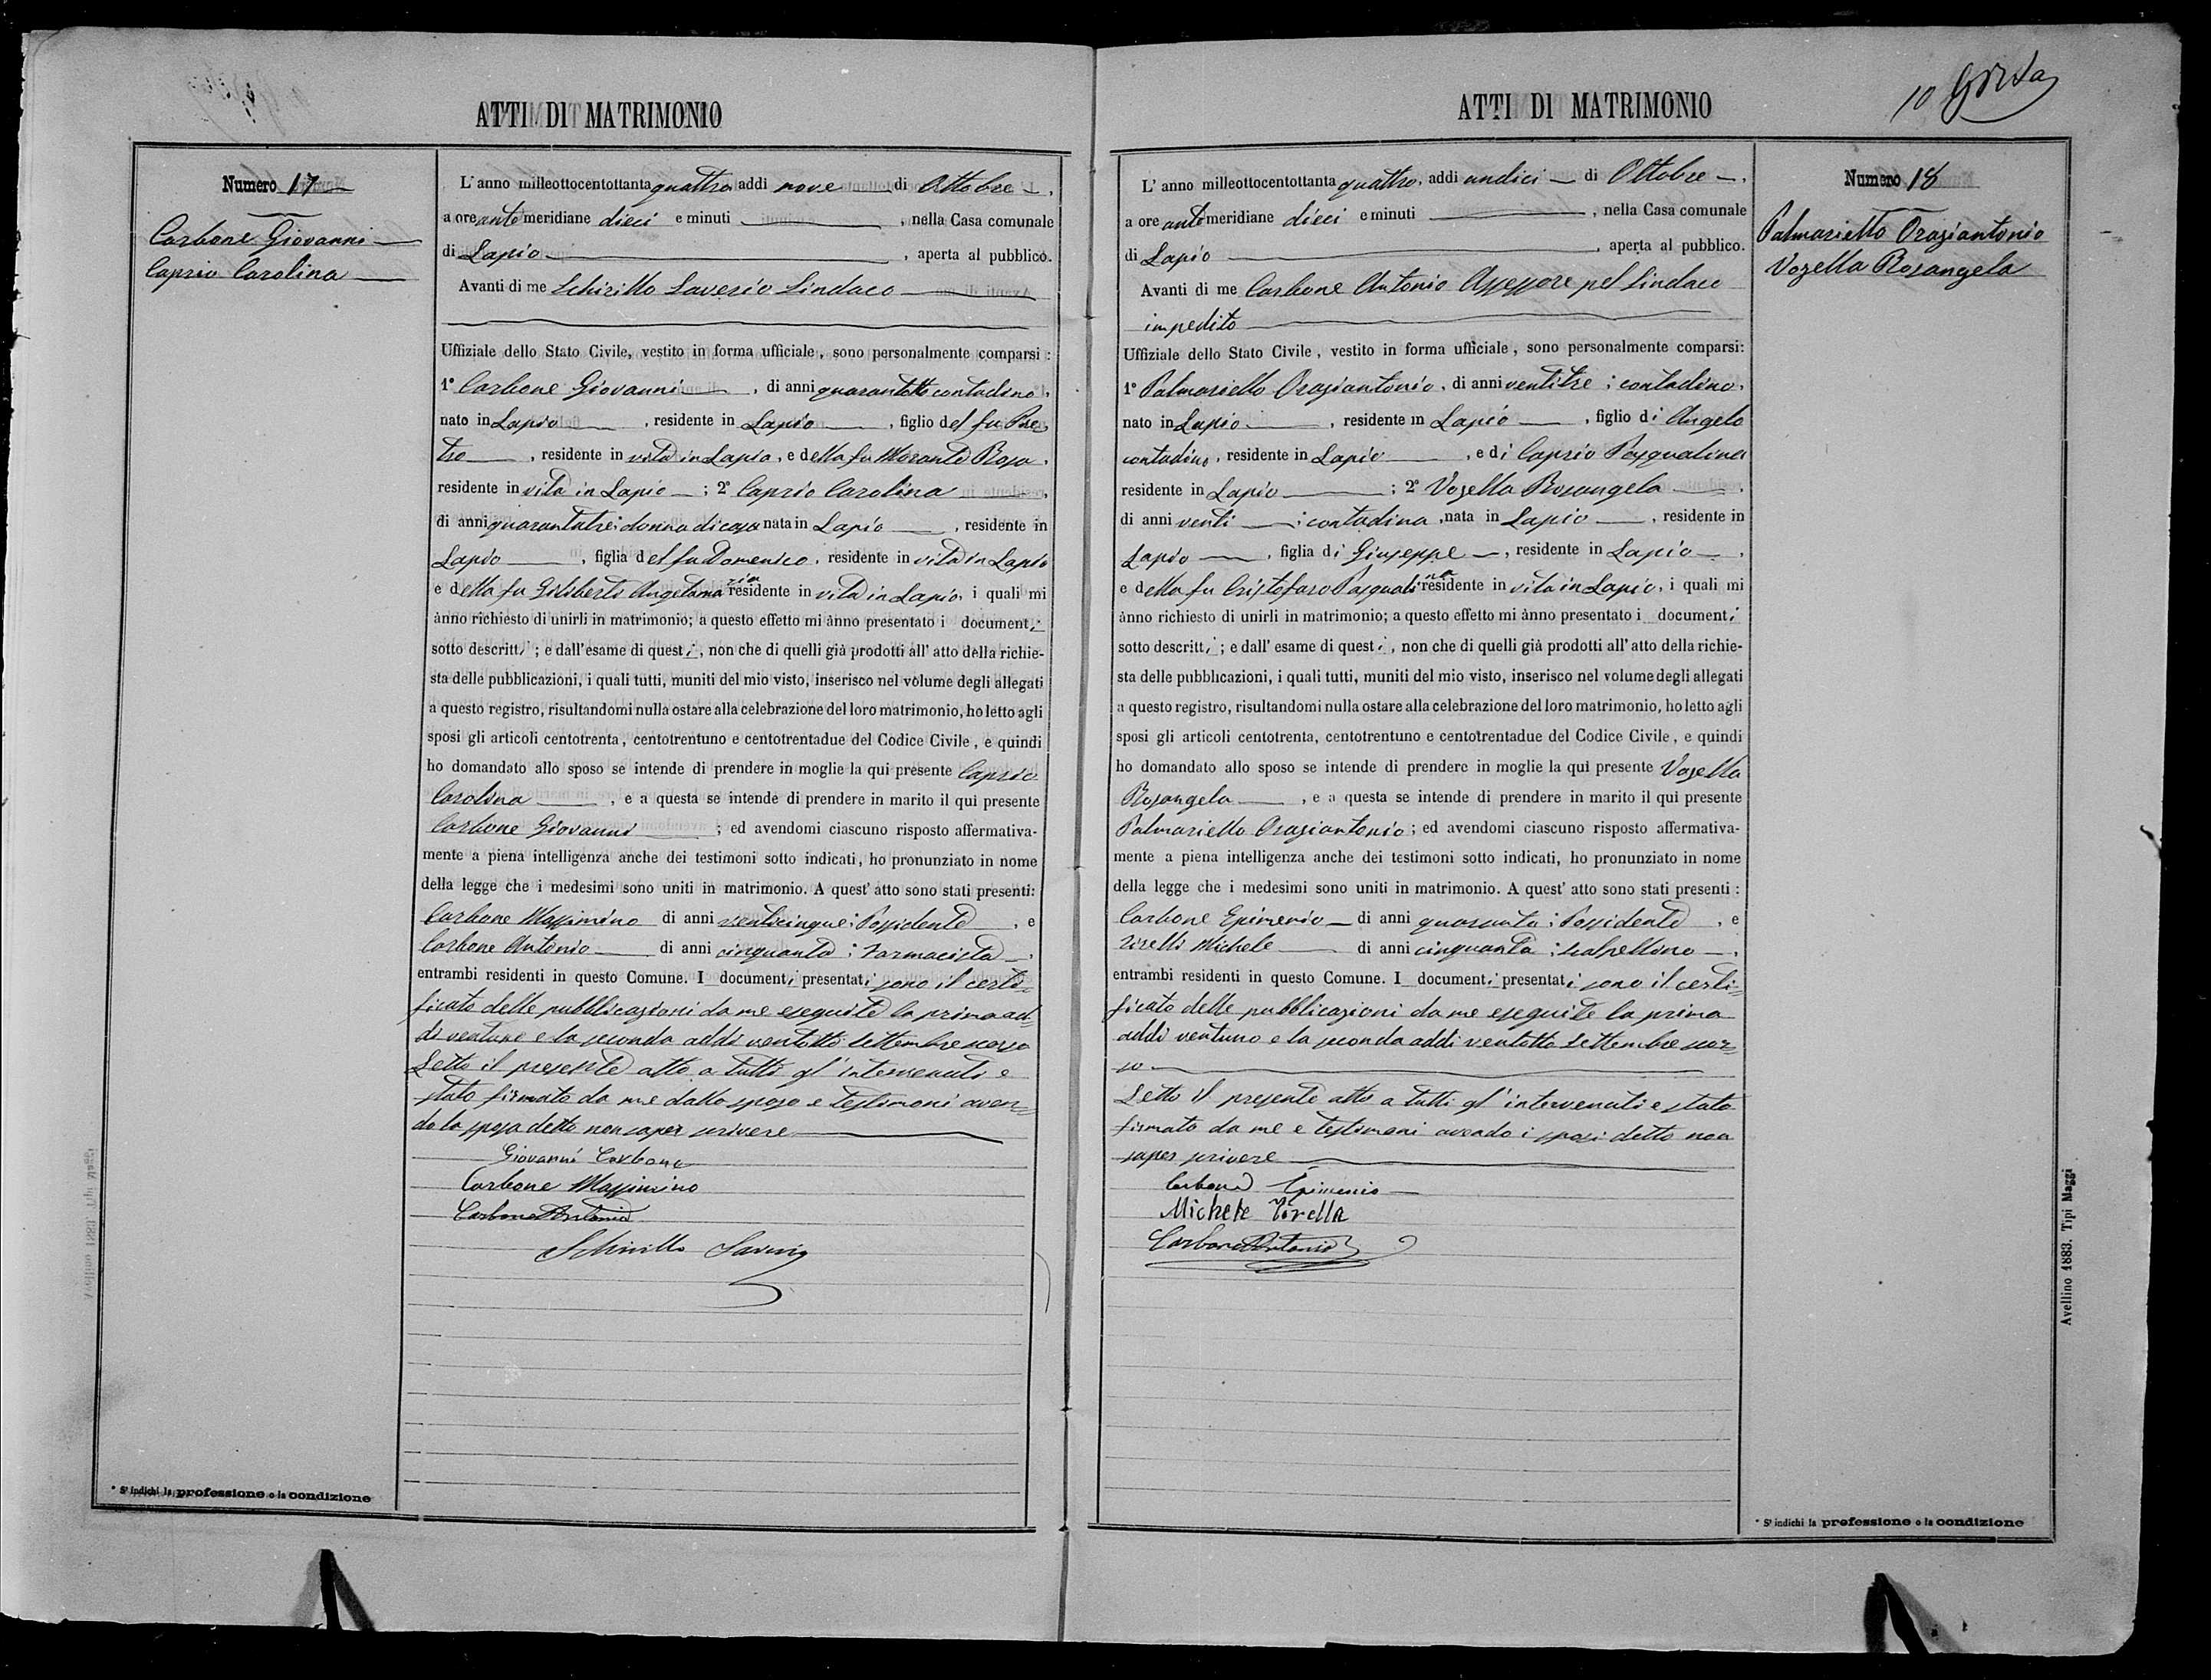 ATTI DI MATRIMONIO
Numero 17
Carbone Giovanni
Caprio Carolina
L'anno milleottocentottanta quattro, addi nove di Ottobre,
a ore ante meridiane dieci e minuti , nella Casa comunale
di Lapio , aperta al pubblico.
Avanti di me Schirillo Saverio Sindaco
Uffiziale dello Stato Civile, vestito in forma ufficiale, sono personalmente comparsi:
1° Carbone Giovanni , di anni quarantotto contadino,
nato in Lapio , residente in Lapio , figlio del fu Pie
tro , residente in vita in Lapio, e della fu Morante Rosa,
residente in vita in Lapio ; 2° Caprio Carolina ,
di anni quarantatre: donna di casa nata in Lapio , residente in
Lapio , figlia del fu Domenico, residente in vita in Lapio
e della fu Giliberti Angelamaria residente in vita in Lapio, i quali mi
ànno richiesto di unirli in matrimonio; a questo effetto mi ànno presentato i documenti
sotto descritti; e dall'esame di questi, non che di quelli già prodotti all'atto della richie-
sta delle pubblicazioni, i quali tutti, muniti del mio visto, inserisco nel volume degli allegati
a questo registro, risultandomi nulla ostare alla celebrazione del loro matrimonio, ho letto agli
sposi gli articoli centotrenta, centotrentuno e centotrentadue del Codice Civile, e quindi
ho domandato allo sposo se intende di prendere in moglie la qui presente Caprio
Carolina , e a questa se intende di prendere in marito il qui presente
Carbone Giovanni ; ed avendomi ciascuno risposto affermativa-
mente a piena intelligenza anche dei testimoni sotto indicati, ho pronunziato in nome
della legge che i medesimi sono uniti in matrimonio. A quest'atto sono stati presenti:
Carbone Massimino di anni venticinque: Possidente , e
Carbone Antonio di anni cinquanta: Farmacista ,
entrambi residenti in questo Comune. I documenti presentati sono il certi=
ficato delle pubblicazioni da me eseguite la prima ad=
di ventuno e la seconda addi ventotto Settembre scorso
Letto il presente atto a tutti gl'intervenuti e
stato firmato da me dallo sposo e testimoni aven=
do la sposa detto non saper scrivere
Giovanni Carbone
Carbone Massimino
Carbone Antonio
Schirillo Saverio
* S'indichi la professione o la condizione
10
ATTI DI MATRIMONIO
Numero 18
Palmariello Oraziantonio
Vozella Rosangela
L'anno milleottocentottanta quattro, addi undici di Ottobre,
a ore ante meridiane dieci e minuti , nella Casa comunale
di Lapio , aperta al pubblico.
Avanti di me Carbone Antonio Assessore pel Sindaco
impedito
Uffiziale dello Stato Civile, vestito in forma ufficiale, sono personalmente comparsi:
1° Palmariello Oraziantonio, di anni ventitre; contadino,
nato in Lapio , residente in Lapio , figlio di Angelo
contadino, residente in Lapio , e di Caprio Pasqualina
residente in Lapio ; 2° Vozella Rosangela ,
di anni venti ; contadina, nata in Lapio , residente in
Lapio , figlia di Giuseppe , residente in Lapio ,
e della fu Cristofaro Pasqualina residente in vita in Lapio, i quali mi
ànno richiesto di unirli in matrimonio; a questo effetto mi ànno presentato i documenti
sotto descritti; e dall'esame di questi, non che di quelli già prodotti all'atto della richie-
sta delle pubblicazioni, i quali tutti, muniti del mio visto, inserisco nel volume degli allegati
a questo registro, risultandomi nulla ostare alla celebrazione del loro matrimonio, ho letto agli
sposi gli articoli centotrenta, centotrentuno e centotrentadue del Codice Civile, e quindi
ho domandato allo sposo se intende di prendere in moglie la qui presente Vozella
Rosangela , e a questa se intende di prendere in marito il qui presente
Palmariello Oraziantonio; ed avendomi ciascuno risposto affermativa-
mente a piena intelligenza anche dei testimoni sotto indicati, ho pronunziato in nome
della legge che i medesimi sono uniti in matrimonio. A quest'atto sono stati presenti:
Carbone Epimenio di anni quaranta: Possidente , e
Tirelli Michele di anni cinquanta: scalpellino ,
entrambi residenti in questo Comune. I documenti presentati sono il certi=
ficato delle pubblicazioni da me eseguite la prima
addi ventuno e la seconda addi ventotto Settembre scor=
so
Letto il presente atto a tutti gl'intervenuti e stato
firmato da me e testimoni avendo i sposi detto non
saper scrivere
Carbone Epimenio
Michele Tirella
Carbone Antonio
* S'indichi la professione o la condizione
Avellino 1883. Tipi Maggi